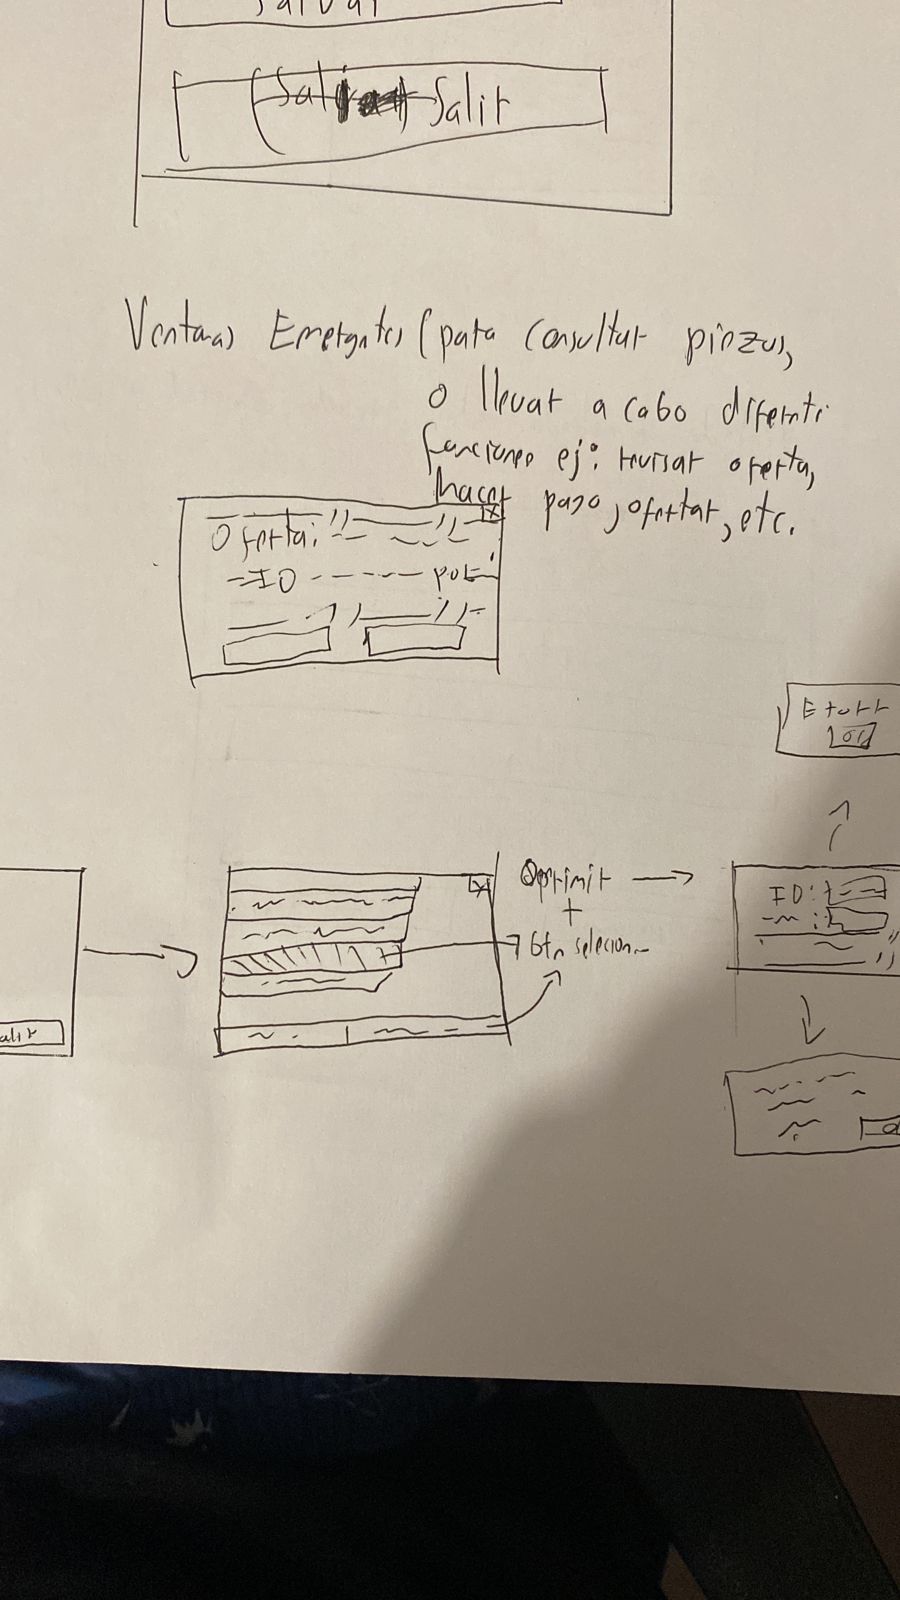 Salvar
Salir
Ventanas Emergntes (para consultar piezas,
o llevar a cabo difernte
funciones ej: revisar oferta,
hacer pazo, ofertar, etc.
X
Oferta:
- ID - - - - - por:
Error
OK
X
Oprimir
+
btn selecion
ID:
alir